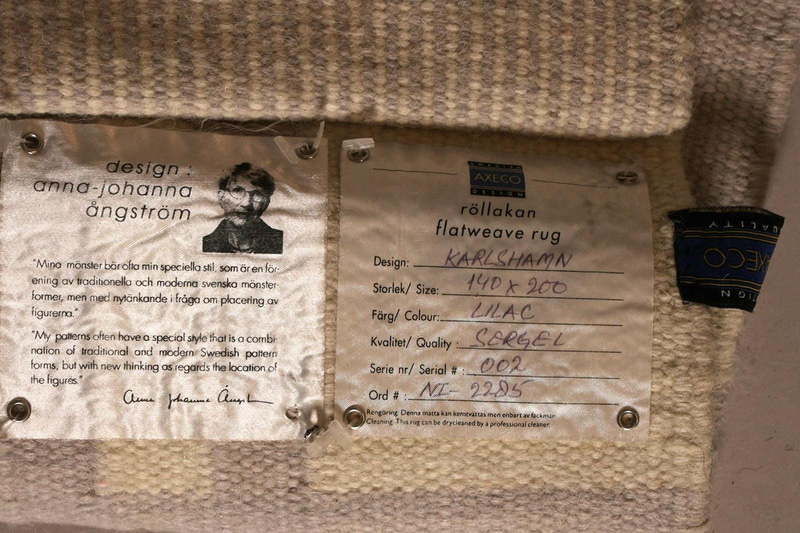 design :
anna-johanna
ångström
"Mina mönster bär ofta min speciella stil, som är en för-
ening av traditionella och moderna svenska mönster-
former, men med nytänkande i fråga om placering av
figurerna."
"My patterns often have a special style that is a combi-
nation of traditional and modern Swedish pattern
forms, but with new thinking as regards the location of
the figures."
Anna Johanna Ångst
SWEDISH
AXECO
DESIGN
röllakan
flatweave rug
Design: KARLSHAMN
Storlek/ Size: 140 x 200
Färg/ Colour: LILAC
Kvalitet/ Quality : SERGEL
Serie nr/ Serial # : 002
Ord # : NI-2285
Rengöring. Denna matta kan kemtvättas men enbart av fackman.
Cleaning. This rug can be drycleaned by a professional cleaner.
QUALITY
AXECO
IGN